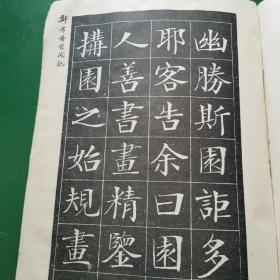 幽勝斯園詎多
耶客告余曰園
人善書畫精鑒
搆園之始規畫
鄭孝胥園記